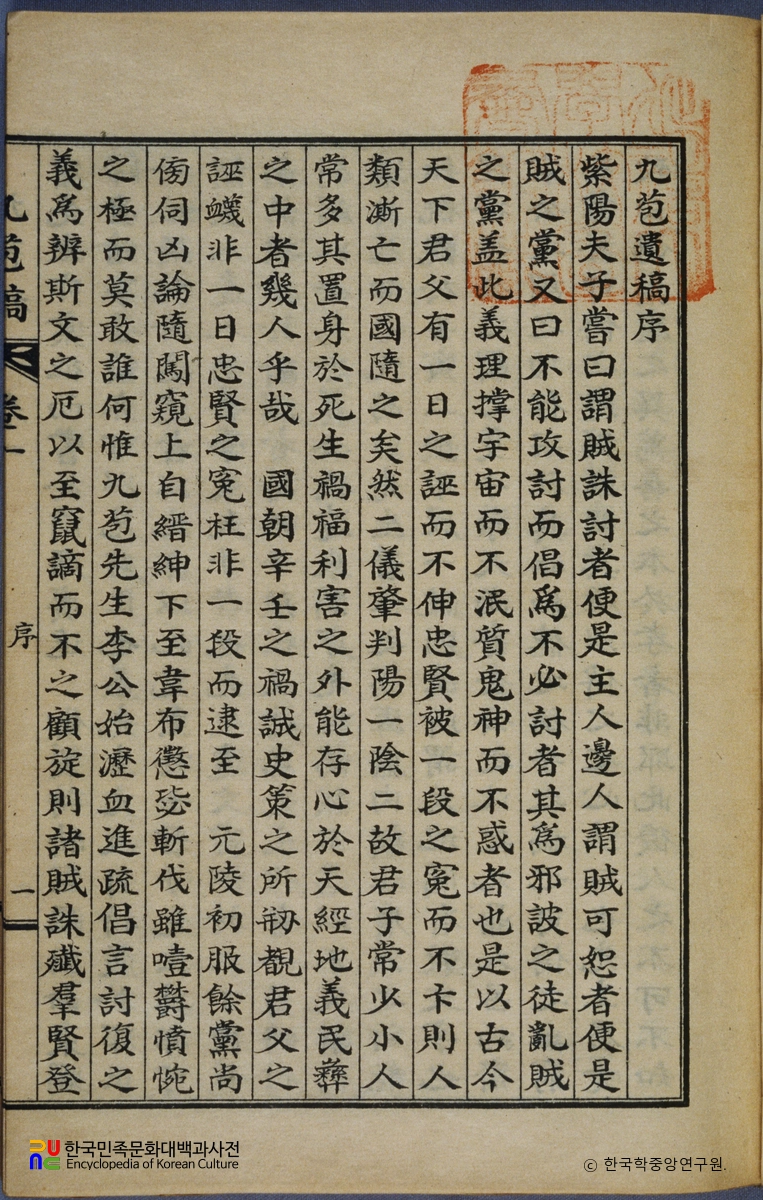 九苞遺稿序
紫陽夫子嘗曰謂賊誅討者便是主人邊人謂賊可恕者便是
賊之黨又曰不能攻討而倡爲不必討者其爲邪詖之徒亂賊
之黨盖此義理撑宇宙而不泯質鬼神而不惑者也是以古今
天下君父有一日之誣而不伸忠賢被一段之寃而不卞則人
類澌亡而國隨之矣然二儀肇判陽一陰二故君子常少小人
常多其置身於死生禍福利害之外能存心於天經地義民彝
之中者幾人乎哉 國朝辛壬之禍誠史策之所刱覩君父之
誣衊非一日忠賢之寃枉非一段而逮至 元陵初服餘黨尚
傍伺凶論隨闖窺上自縉紳下至韋布懲毖斬伐雖噎欝憤惋
之極而莫敢誰何惟九苞先生李公始瀝血進疏倡言討復之
義爲辨斯文之厄以至竄謫而不之顧旋則諸賊誅殲羣賢登
九苞稿 卷一
序
一
한국민족문화대백과사전
Encyclopedia of Korean Culture
© 한국학중앙연구원.